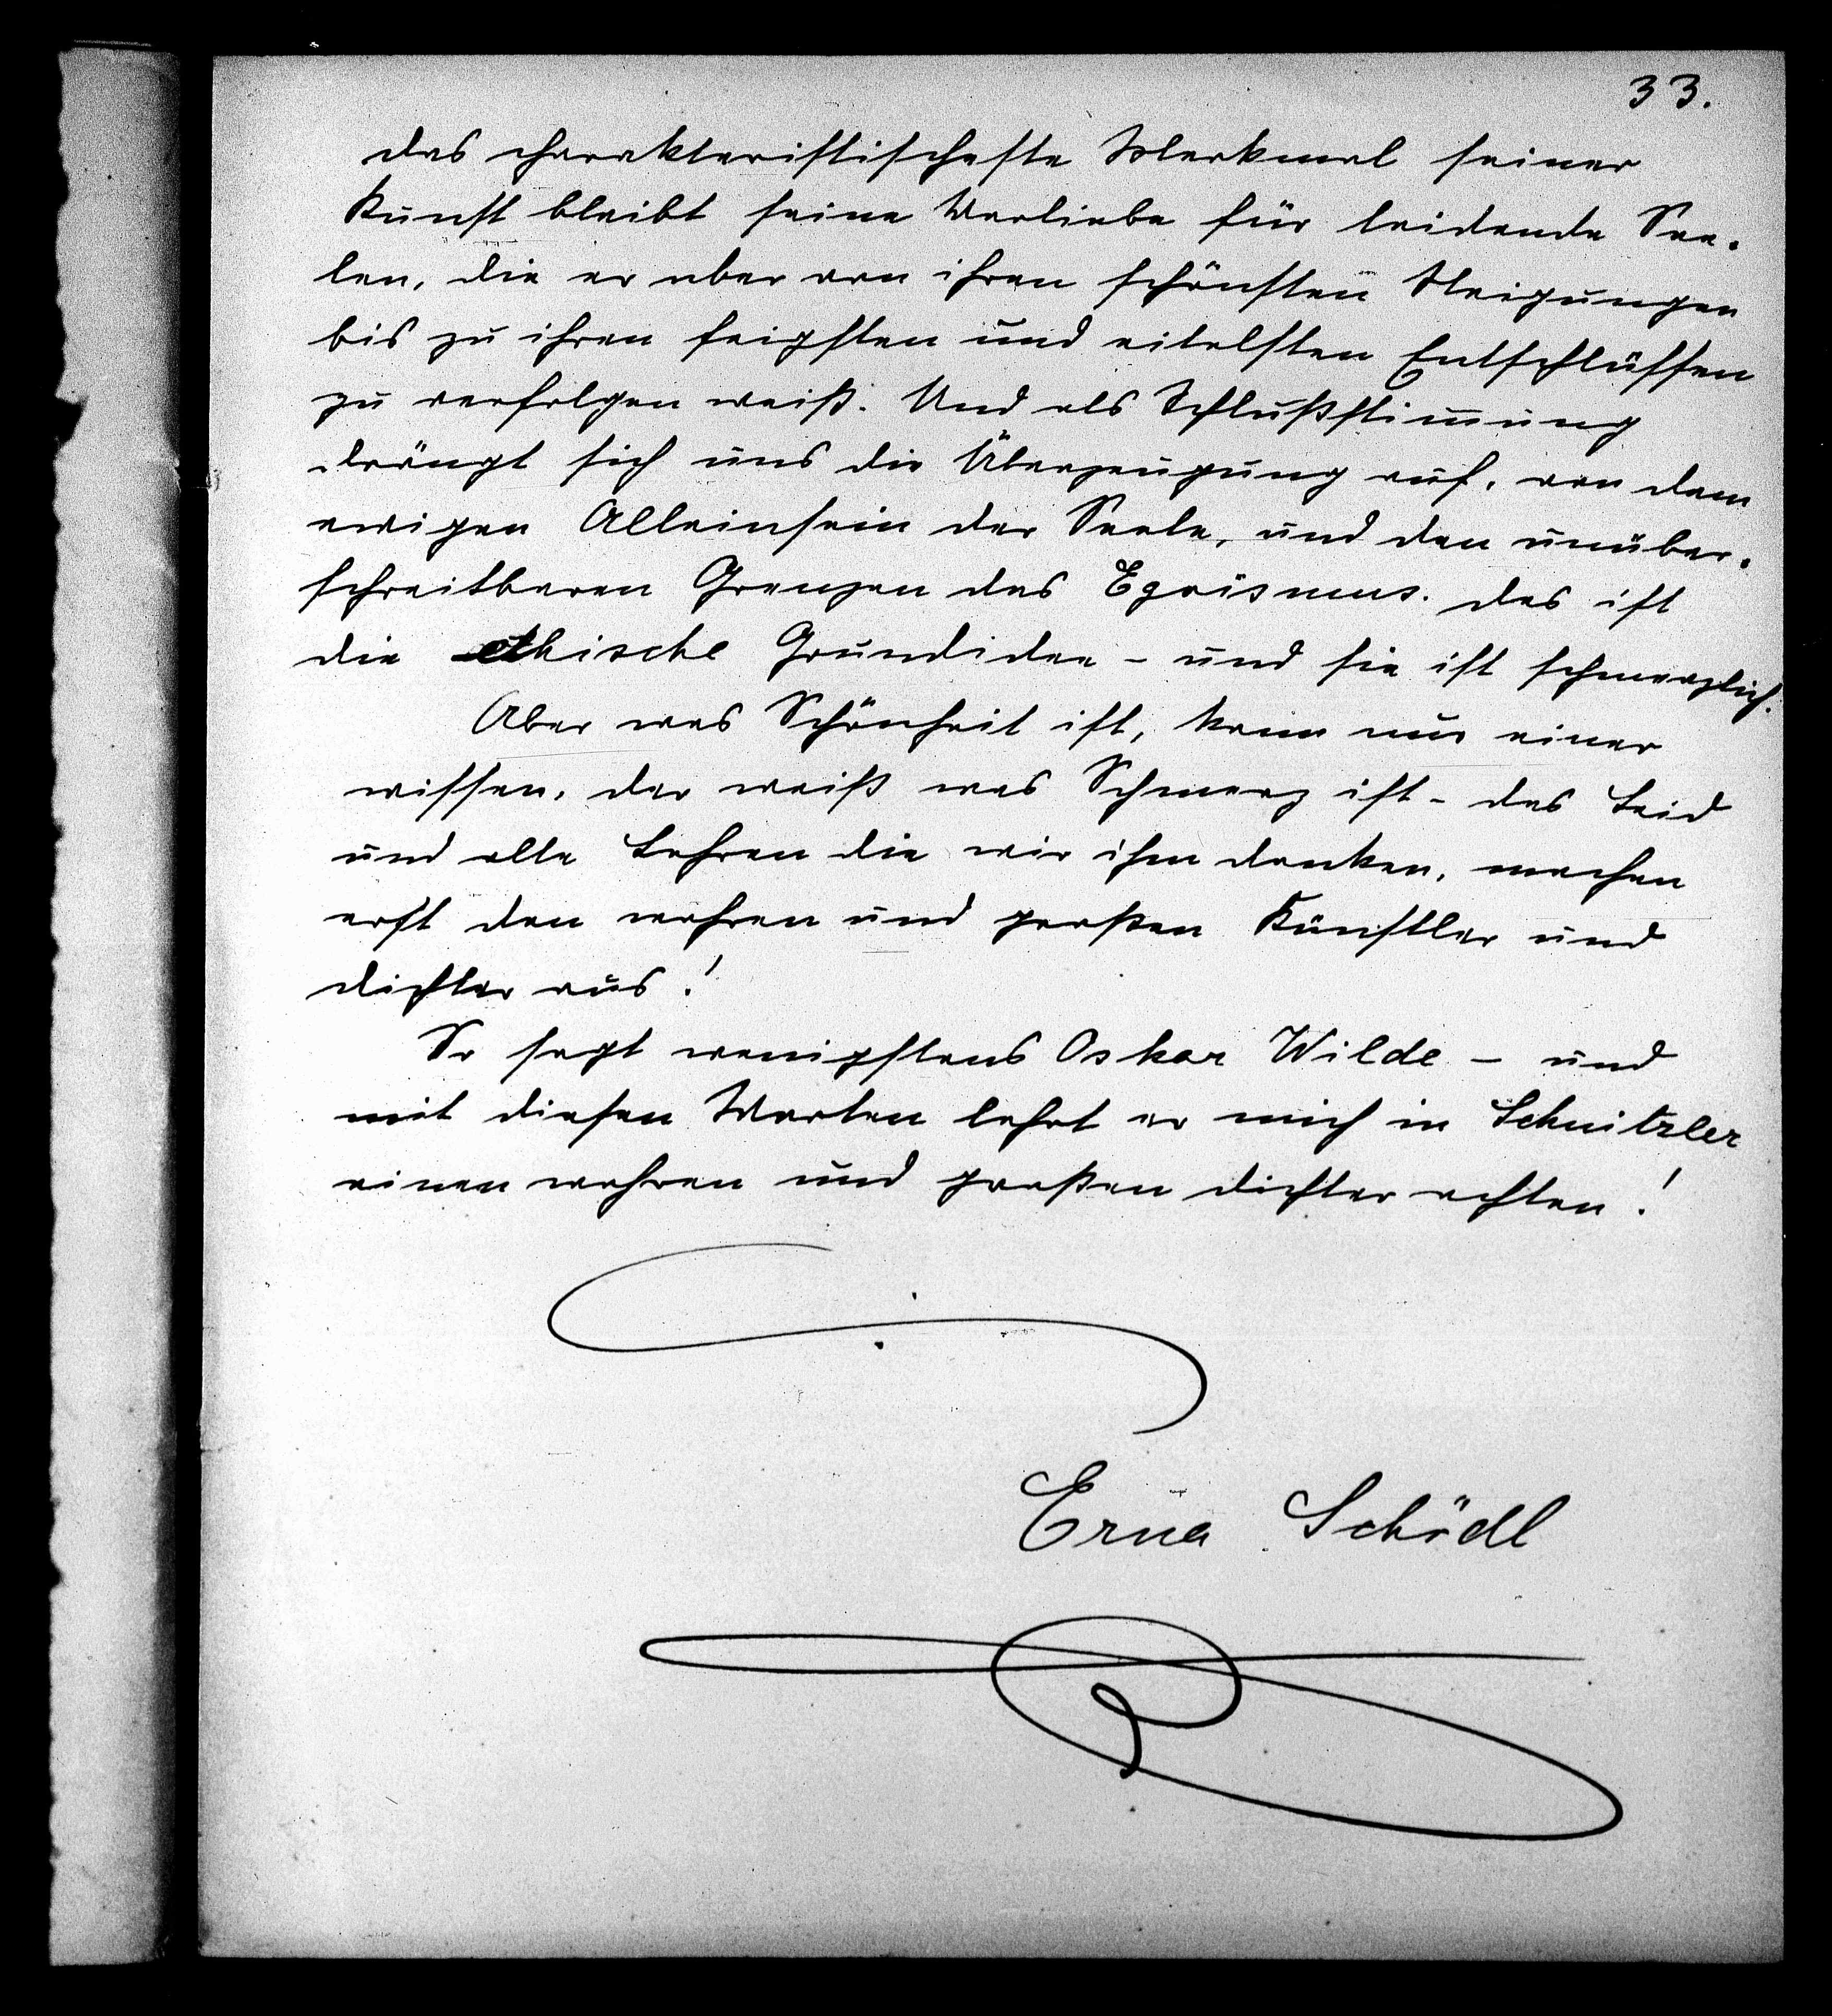 33.
das charakteristischeste Merkmal seiner
Kunst bleibt seine Vorliebe für leidende See-
len, die er aber von ihren schönsten Neigungen
bis zu ihren feigsten und eitelsten Entschlüssen
zu verfolgen weiß. Und als Schlußstimmung
drängt sich uns die Überzeugung auf, von dem
ewigen Alleinsein der Seele, und den unüber-
schreitbaren Grenzen des Egoismus. das ist
die ethische Grundidee – und sie ist schmerzlich.
Aber was Schönheit ist, kann nur einer
wissen, der weiß was Schmerz ist – das Leid
und alle Lehren die wir ihm danken, machen
erst den wahren und großen Künstler und
dichter aus!
So sagt wenigstens Oskar Wilde – und
mit diesen Worten lehrt er mich in Schnitzler
einen wahren und großen dichter achten!
Erna Schödl